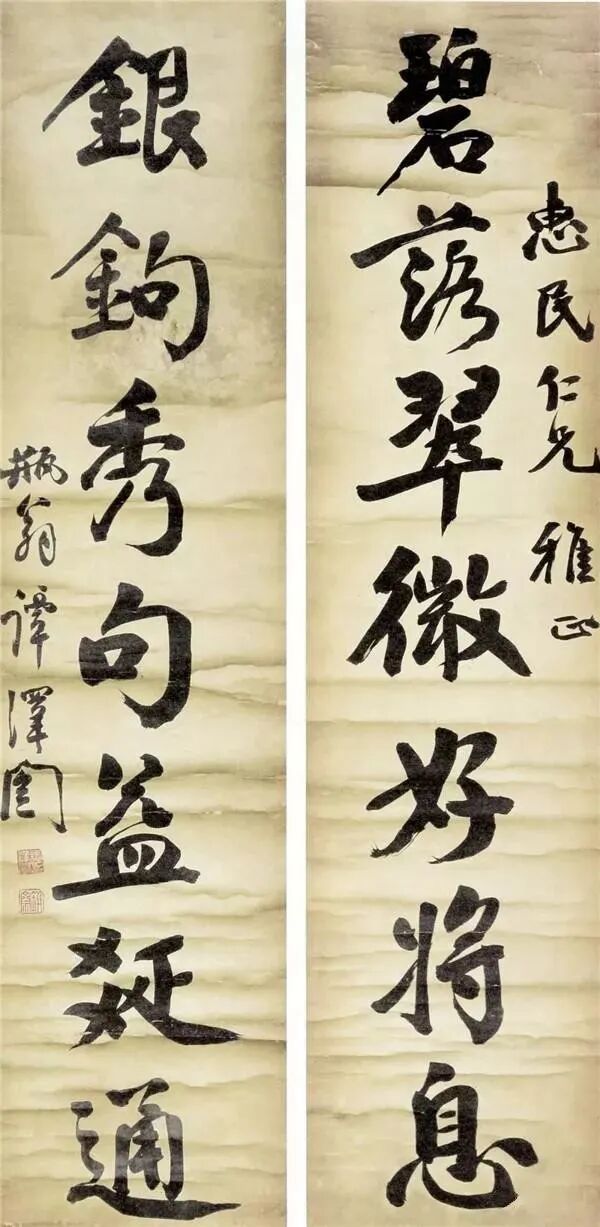 惠民仁兄 雅正
碧落翠微好將息
銀鉤秀句益疏通
瓶翁譚澤闓